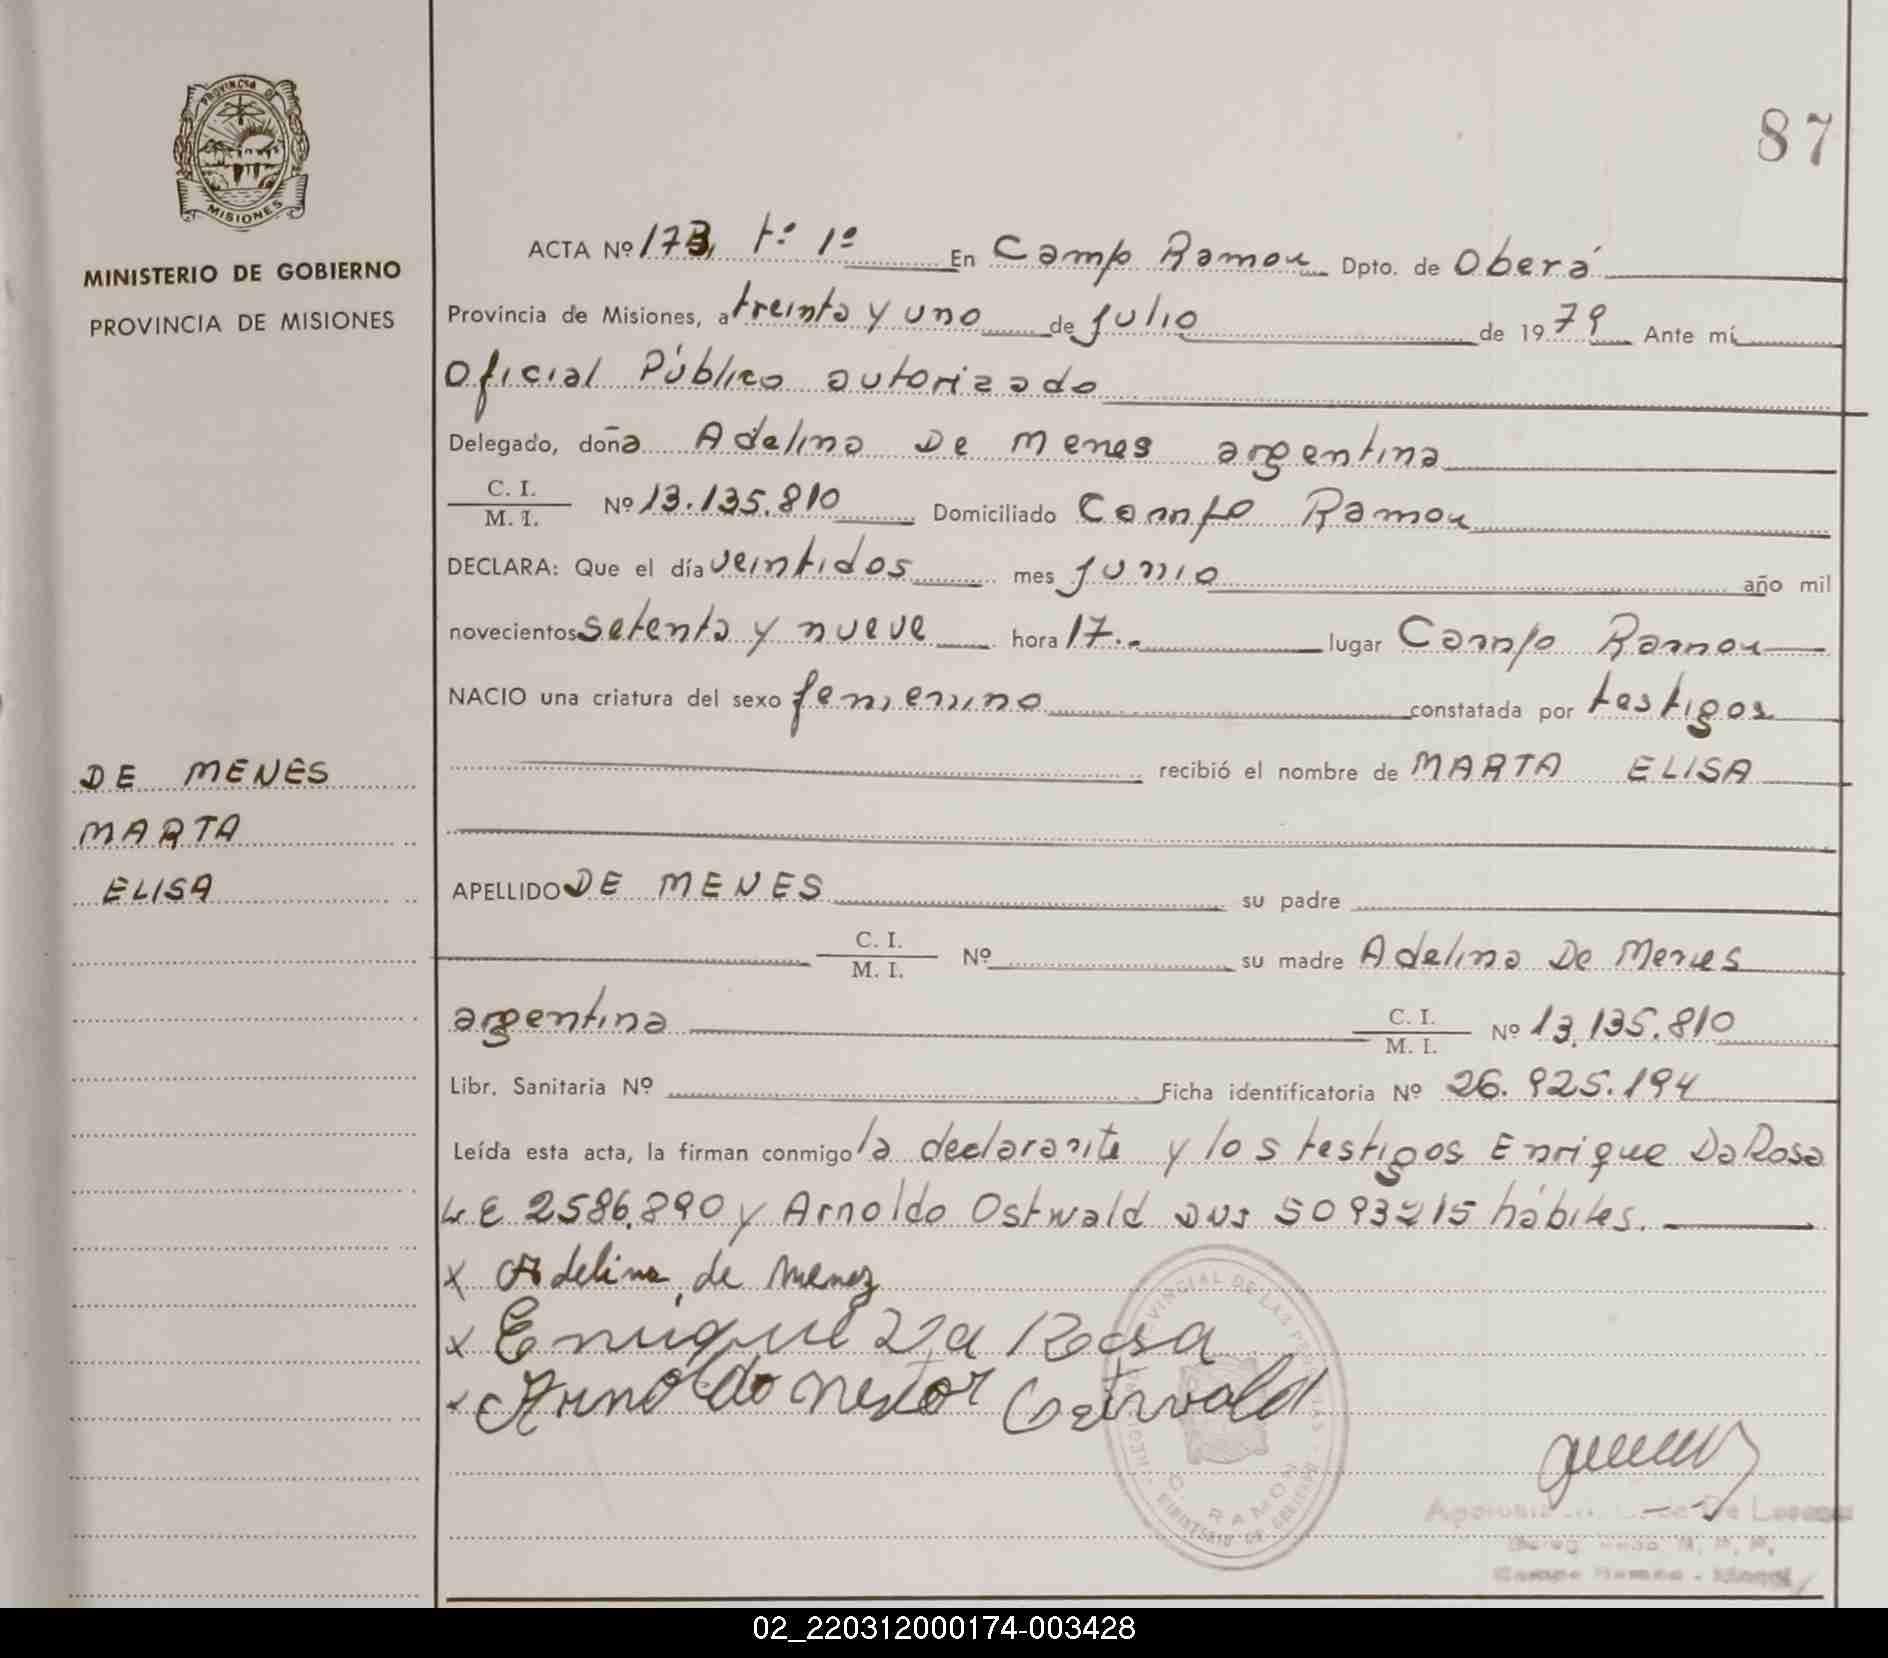 PROVINCIA DE
MISIONES
MINISTERIO DE GOBIERNO
PROVINCIA DE MISIONES
87
ACTA Nº 173, tº 1º En Campo Ramon Dpto. de Oberá
Provincia de Misiones, a treinta y uno de Julio de 1979 Ante mí
Oficial Público autorizado
Delegado, doña Adelina De Menes argentina
C. I.
M. I. Nº 13.135.810 Domiciliado Campo Ramon
DECLARA: Que el día veintidos mes Junio año mil
novecientos setenta y nueve hora 17.- lugar Campo Ramon
NACIO una criatura del sexo femenino constatada por testigos
recibió el nombre de MARTA ELISA
DE MENES
MARTA
ELISA
APELLIDO DE MENES su padre
C. I.
M. I. Nº su madre Adelina De Menes
argentina C. I.
M. I. Nº 13.135.810
Libr. Sanitaria Nº Ficha identificatoria Nº 26.925.194
Leída esta acta, la firman conmigo la declarante y los testigos Enrique DaRosa
LE 2586.890 y Arnoldo Ostwald DNI 5093215 hábiles.
x Adelina de Menez
x Enrique Da Rosa
x Arnoldo Nestor Ostwald
PROVINCIAL DE LAS PERSONAS
C. RAMON
MINISTERIO DE GOBIERNO
02_220312000174-003428